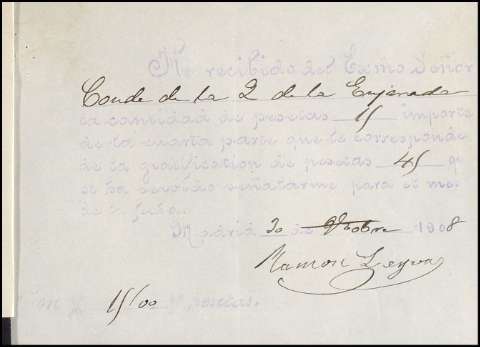 He recibido del Excmo Señor
Conde de la 2 de la Enjarada
la cantidad de pesetas 15 importe
de la cuarta parte que le corresponde
de la gratificacion de pesetas 45 q
se ha servido señalarme para el me
de la fecha.
Madrid 30 de 9bre 1908
Ramon Leyva
15/00 Pesetas.